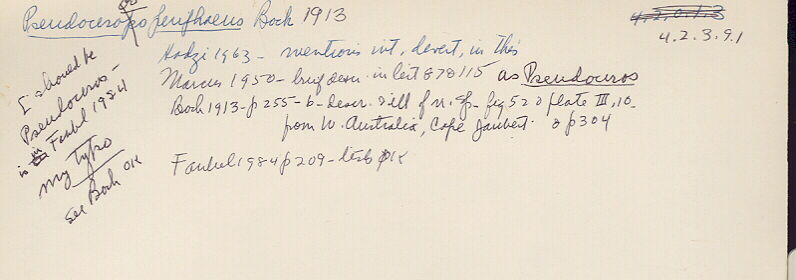 Pseudoceros periphaeus Bock 1913
4.2.0.1.3
4.2.3.9.1
Hadzi 1963 - mentions int. devert, in this
Marcus 1950 - brief descr. in lest 87 & 115 as Pseudoceros
Bock 1913 - p 255-6 - descr. & ill of n. sp. - fig 52 & plate III, 10.
from W. Australia, Cape Jaubert. & p 304
Faubel 1984 p 209 - lists OK
I should be
Pseudoceros -
is in Faubel 1984
my typo
see Bock OK